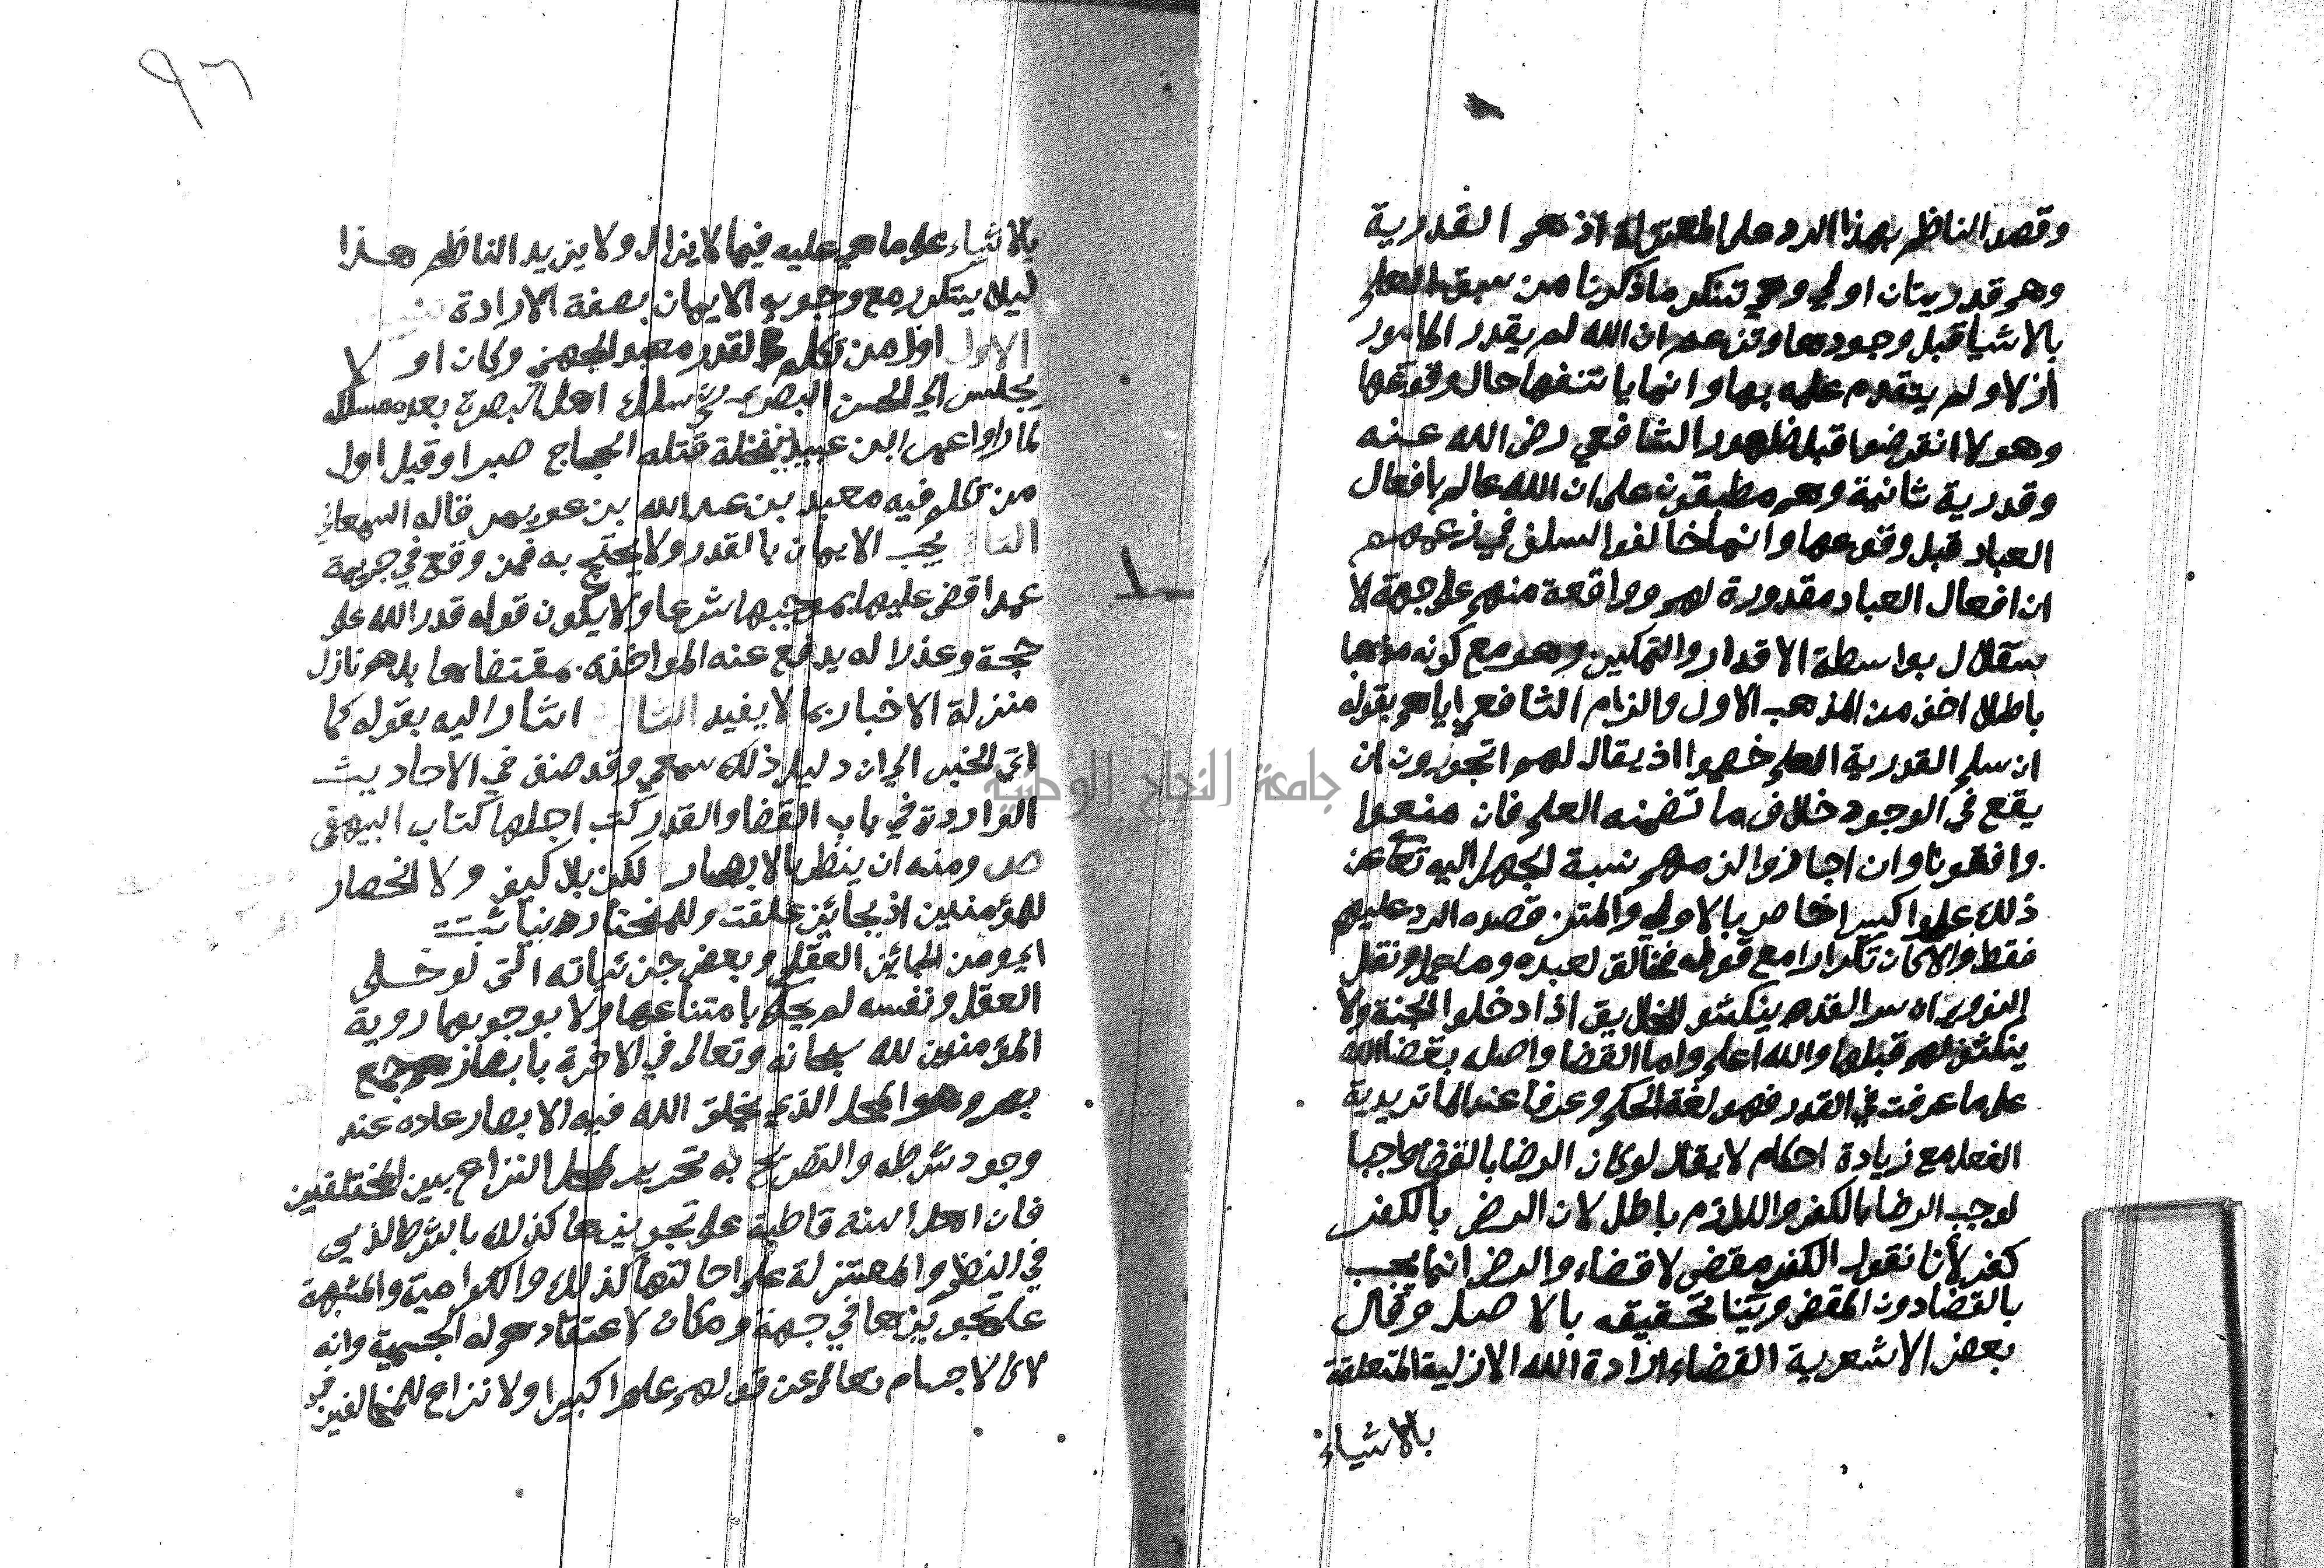 وقصد الناظم بهذا الرد على المعتزلة اذ هم القدرية
وهم قدريتان اولي وهي تنكر ما ذكرنا من سبق العلم
بالاشيا قبل وجودها وتزعم ان الله لم يقدر الامور
ازلا ولم يتقدم علمه بها وانما ياتنفها حال وقوعها
وهولا انقرضوا قبل ظهور الشافعي رضى الله عنه
وقدرية ثانية وهم مطبقون على ان الله عالم بافعال
العباد قبل وقوعها وانما خالفوا السلف في زعمهم
ان افعال العباد مقدورة لهم وواقعة منهم على جهة الا
ستقلال بواسطة الاقدار والتمكين وهو مع كونه مذهبا
باطلا اخف من المذهب الاول والزام الشافعي اياهم بقوله
ان سلم القدرية العلم خصموا اذ يقال لهم اتجوزون ان
يقع في الوجود خلاف ما تضمنه العلم فان منعوا
وافقونا وان اجازوا لزمهم نسبة الجهل اليه تعالى عن
ذلك علوا كبيرا خاص بالاولي والمتن قصده الرد عليهم
فقط والا كان تكرارا مع قوله فخالق لعبده وما عمل ونقل
النووي ان سر القدر ينكشف للخلايق اذا دخلوا الجنة ولا
ينكشف لهم قبلها والله اعلم واما القضا واصله بقضا الله
على ما عرفت في القدر فهو لغة الحكم وعرفا عند الماتريدية
الفعل مع زيادة احكام لا يقال لو كان الرضا بالقضا واجبا
لوجب الرضا بالكفر واللازم باطل لان الرضى بالكفر
كفر لأنا نقول الكفر مقضى لا قضاء والرضى انما يجب
بالقضا دون المقضى وبينا تحقيقه بالاصل وقال
بعض الاشعرية القضاء ارادة الله الازلية المتعلقة
بالاشياء
٩٦
بالاشياء على ما هي عليه فيما لا يزال ولا يزيد الناظم هذا
ليلا يتكرر مع وجوب الايمان بصفة الارادة
الاول اول من تكلم في القدر معبد الجهني وكان اولا
يجلس الي الحسن البصري ثم سلك اهل البصرة بعده مسلكه
لما راوا عمرو ابن عبيد ينتحله قتله الحجاج صبرا وقيل اول
من تكلم فيه معبد بن عبد الله بن عويمر قاله السمعاني
الثاني يجب الايمان بالقدر ولا يحتج به فمن وقع في جريمة
عمدا قضى عليه بموجبها شرعا ولا يكون قوله قدر الله على
حجة وعذرا له يدفع عنه المواخذه بمقتضاها بل هو نازل
منزلة الاخبار بما لا يفيد الثالث اشار اليه بقوله كما
اتى الخبر الي ان دليل ذلك سمعي وقد صنف في الاحاديث
الواردة في باب القضا والقدر كتب اجلها كتاب البيهقى
ص ومنه ان ينظر بالابصار لكن بلا كيف ولا انحصار
للمؤمنين اذ بجائز علقت وللمختار دنيا ثبتت
اي ومن الجائز العقلي وبعض جزئياته التي لو خلى
العقل ونفسه لم يحكم بامتناعها ولا بوجوبها روية
المؤمنين لله سبحانه وتعالى في الاخرة بابصارهم جمع
بصر وهو المحل الذي يخلق الله فيه الابصار عاده عند
وجود شرطه والتصريح به تحرير لمحل النزاع بين المختلفين
فان اهل السنة قاطبة على تجويزها كذلك بالشرط الذي
في النظم والمعتزلة على احالتها كذلك والكرامية والمشبهة
على تجويزها في جهة ومكان لاعتقادهم له الجسمية وانه
لا كالاجسام تعالى عن قولهم علوا كبيرا ولا نزاع للمخالفين في
جامعة النجاح الوطنية